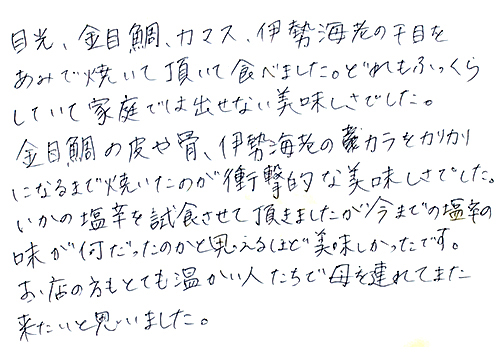 目光、金目鯛、カマス、伊勢海老の干目を
あみで焼いて頂いて食べました。どれもふっくら
していて家庭では出せない美味しさでした。
金目鯛の皮や骨、伊勢海老のカラをカリカリ
になるまで焼いたのが衝撃的な美味しさでした。
いかの塩辛を試食させて頂きましたが今までの塩辛の
味が何だったのかと思えるほど美味しかったです。
お店の方もとても温かい人たちで母を連れてまた
来たいと思いました。